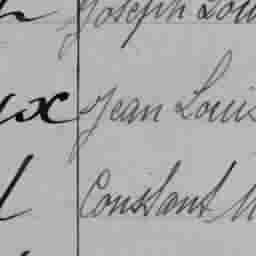 Joseph Lou
ux Jean Louis
Constant